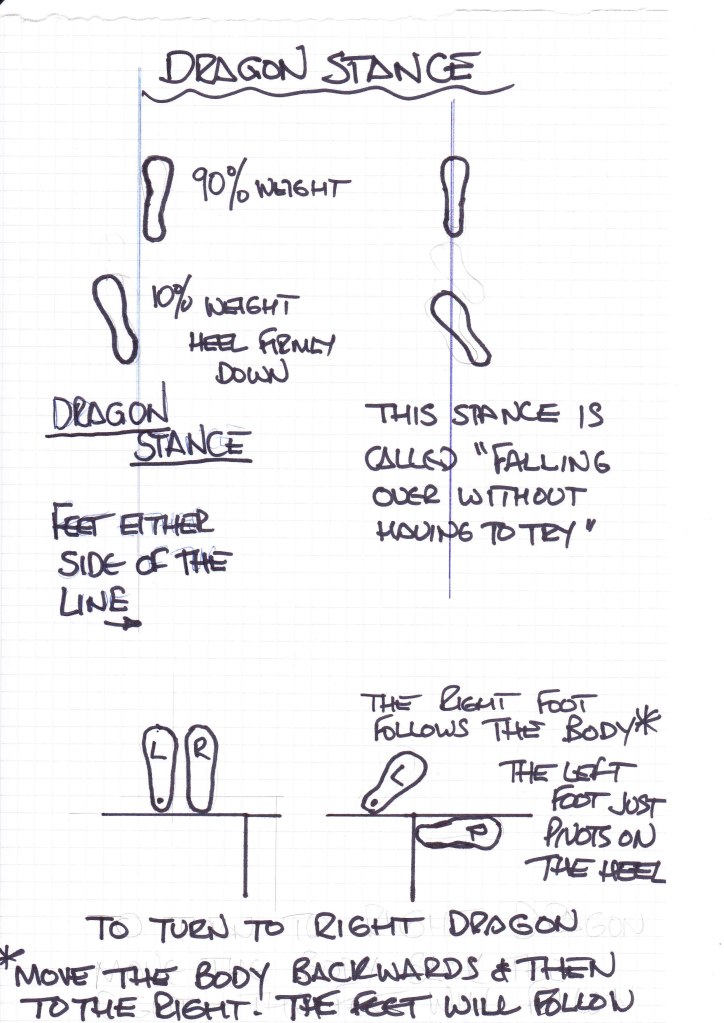 DRAGON STANCE
90% WEIGHT
10% WEIGHT
HEEL FIRMLY
DOWN
DRAGON
STANCE
FEET EITHER
SIDE OF THE
LINE
THIS STANCE IS
CALLED "FALLING
OVER WITHOUT
HAVING TO TRY"
L R
THE RIGHT FOOT
FOLLOWS THE BODY*
L
R
THE LEFT
FOOT JUST
PIVOTS ON
THE HEEL
TO TURN TO RIGHT DRAGON
*MOVE THE BODY BACKWARDS & THEN
TO THE RIGHT. THE FEET WILL FOLLOW